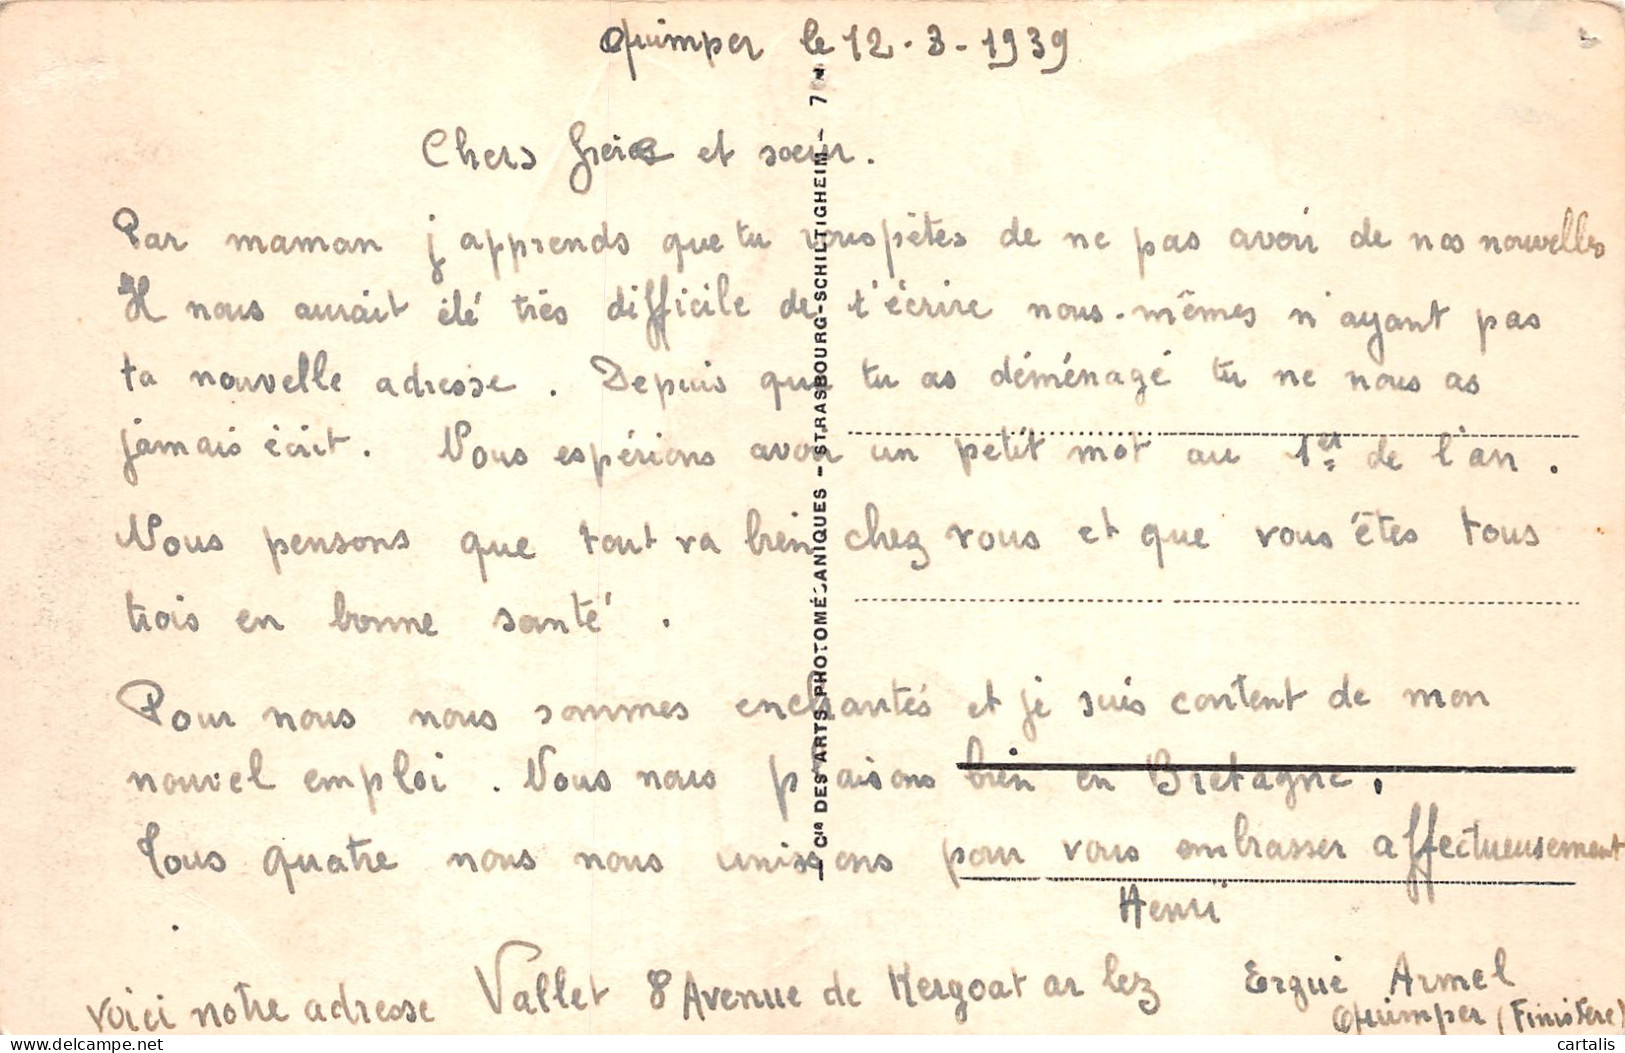 Quimper le 12-3-1939
Chers frère et soeur.
Par maman j'apprends que tu rouspètes de ne pas avoir de nos nouvelles
Il nous aurait été très difficile de t'écrire nous-mêmes n'ayant pas
ta nouvelle adresse. Depuis que tu as déménagé tu ne nous as
jamais écrit. Nous espérions avoir un petit mot au 1er de l'an.
Nous pensons que tout va bien chez vous et que vous êtes tous
trois en bonne santé.
Pour nous nous sommes enchantés et je suis content de mon
nouvel emploi. Nous nous plaisons bien en Bretagne.
Tous quatre nous nous unissons pour vous embrasser affectueusement
Henri
Voici notre adresse Vallet 8 Avenue de Kergoat ar lez Ergué Armel
Quimper (Finistère)
Cie DES ARTS PHOTOMÉCANIQUES - STRASBOURG-SCHILTIGHEIM - 7
cartalis